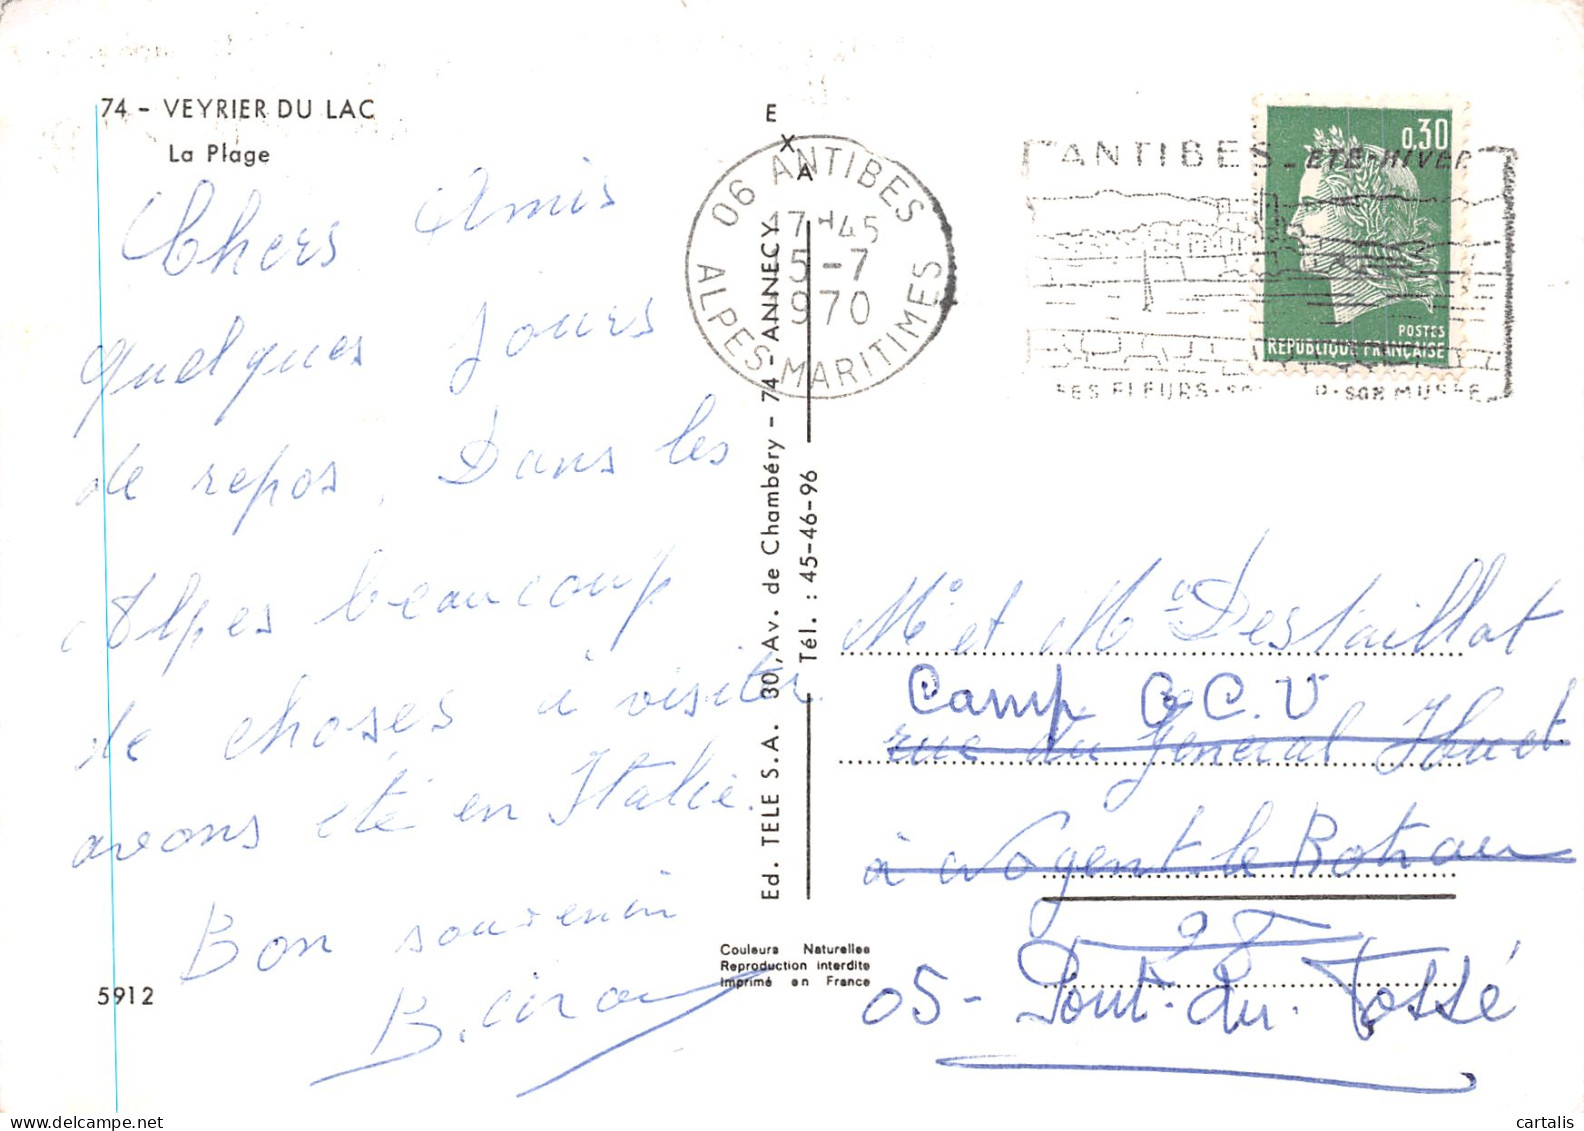 74 - VEYRIER DU LAC
La Plage
Chers Amis
quelques jours
de repos. Dans les
Alpes beaucoup
de choses à visiter
avons été en Italie.
Bon souvenir
5912
EXA
Ed. TELE S.A. 30, Av. de Chambéry - 74 - ANNECY
Tél. : 45-46-96
Couleurs Naturelles
Reproduction interdite
Imprimé en France
06 ANTIBES
17H45
5-7
970
ALPES-MARITIMES
ANTIBES - ETE-HIVER
SES FLEURS - SON MUSEE
0,30
POSTES
REPUBLIQUE FRANÇAISE
Mr et Me Destaillat
Camp C.V
rue du Général Huet
à Nogent le Rotrou
28
05 - Pont-du-Fossé